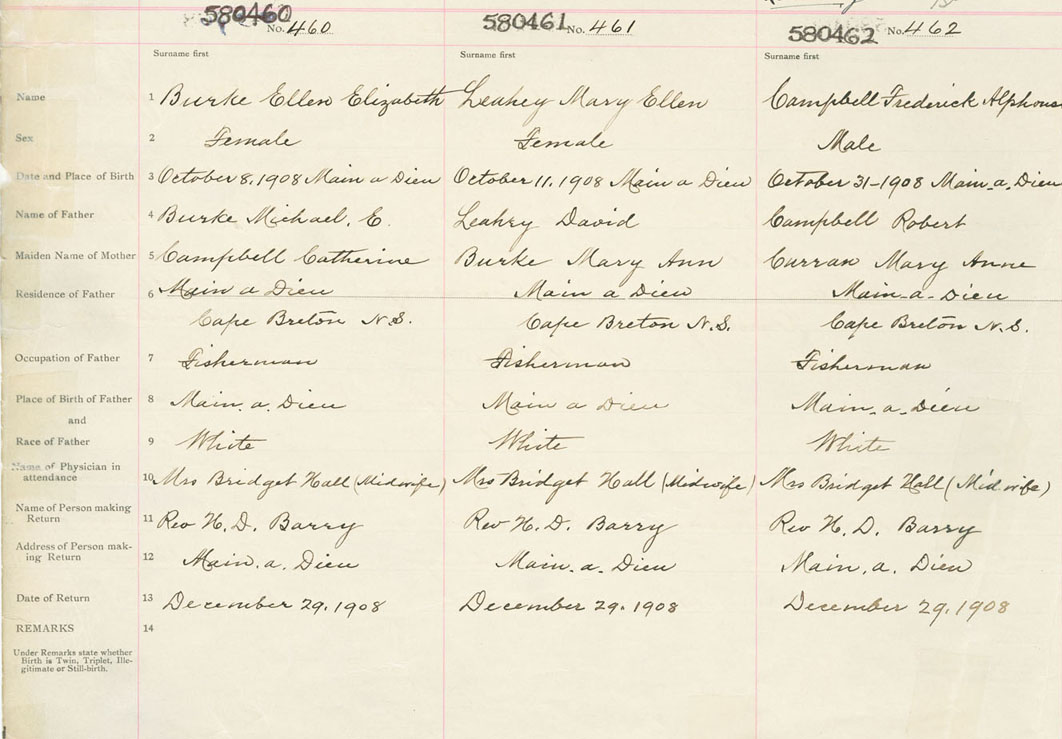 580460 No. 460 580461 No. 461 580462 No. 462
Surname first Surname first Surname first
Name 1 Burke Ellen Elizabeth Leahey Mary Ellen Campbell Frederick Alphons
Sex 2 Female Female Male
Date and Place of Birth 3 October 8, 1908 Main a Dieu October 11, 1908 Main a Dieu October 31-1908 Main-a-Dieu
Name of Father 4 Burke Michael, E. Leahey David Campbell Robert
Maiden Name of Mother 5 Campbell Catherine Burke Mary Ann Curran Mary Anne
Residence of Father 6 Main a Dieu Main a Dieu Main-a-Dieu
Cape Breton N.S. Cape Breton N.S. Cape Breton N.S.
Occupation of Father 7 Fisherman Fisherman Fisherman
Place of Birth of Father 8 Main.a.Dieu Main a Dieu Main-a-Dieu
and
Race of Father 9 White White White
Name of Physician in
attendance 10 Mrs Bridget Hall (Midwife) Mrs Bridget Hall (Midwife) Mrs Bridget Hall (Midwife)
Name of Person making
Return 11 Rev H. D. Barry Rev H. D. Barry Rev H. D. Barry
Address of Person mak-
ing Return 12 Main.a. Dieu Main.a. Dieu Main.a. Dieu
Date of Return 13 December 29, 1908 December 29, 1908 December 29, 1908
REMARKS 14
Under Remarks state whether
Birth is Twin, Triplet, Ille-
gitimate or Still-birth.